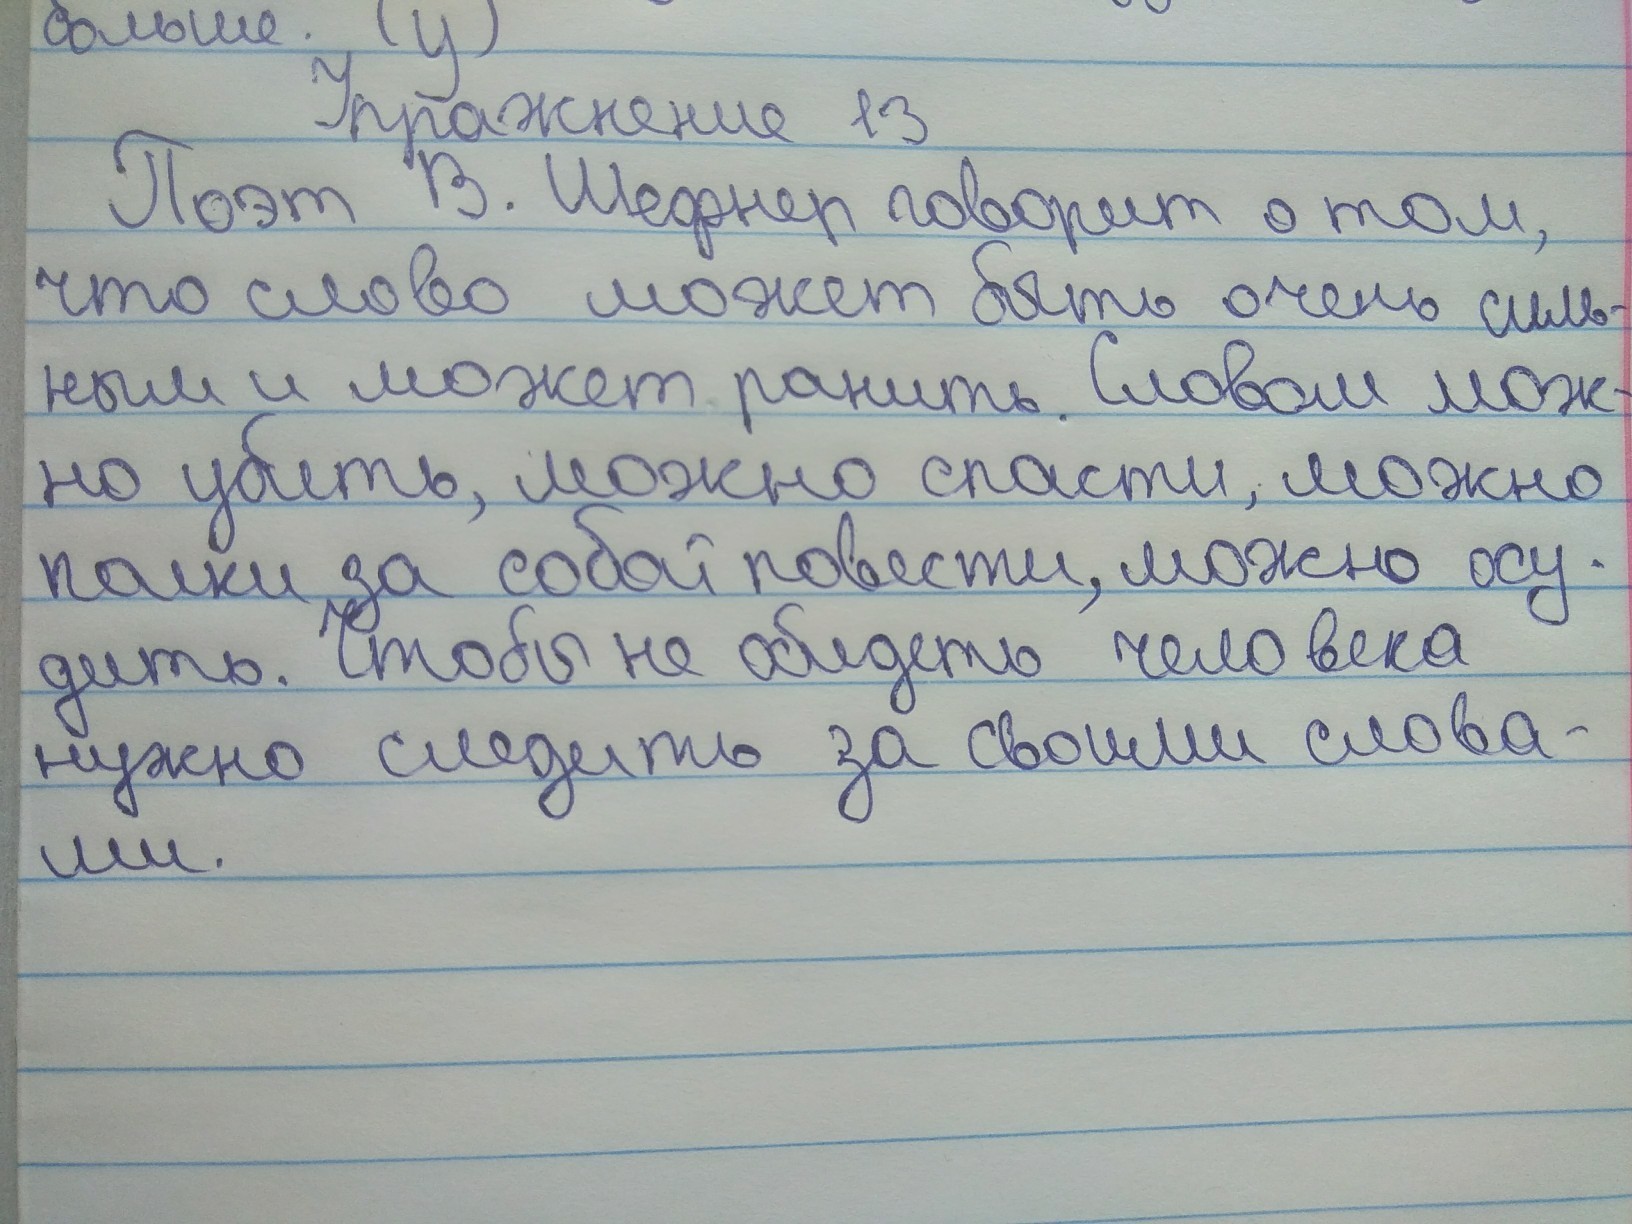 больше. (у)
Упражнение 13
Поэт В. Шефнер говорит о том,
что слово может быть очень силь-
ным и может ранить. Словом мож-
но убить, можно спасти, можно
полки за собой повести, можно осу-
дить. Чтобы не обидеть человека
нужно следить за своими слова-
ми.